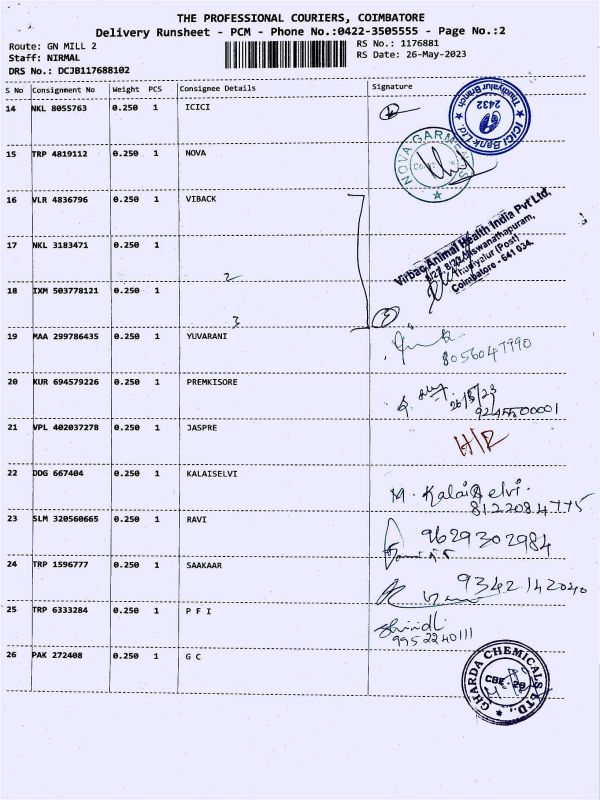 THE PROFESSIONAL COURIERS, COIMBATORE
Delivery Runsheet - PCM - Phone No.:0422-3505555 - Page No.:2
Route: GN MILL 2 RS No.: 1176881
Staff: NIRMAL RS Date: 26-May-2023
DRS No.: DCJB117688102
S No Consignment No Weight PCS Consignee Details Signature
14 NKL 8055763 0.250 1 ICICI
ICICI Bank Ltd 2432 Thudiyalur Branch
15 TRP 4819112 0.250 1 NOVA
NOVA GARMENTS
16 VLR 4836796 0.250 1 VIBACK
Virbac Animal Health India Pvt Ltd,
Viswanathapuram,
Thudiyalur (Post)
Coimbatore - 641 034.
17 NKL 3183471 0.250 1
2
18 IXM 503778121 0.250 1
3 3
19 MAA 299786435 0.250 1 YUVARANI
8056047990
20 KUR 694579226 0.250 1 PREMKISORE
26/5/23
21 VPL 402037278 0.250 1 JASPRE H/R
22 DDG 667404 0.250 1 KALAISELVI M. Kalai Selvi
8122084775
23 SLM 320560665 0.250 1 RAVI 9629302984
24 TRP 1596777 0.250 1 SAAKAAR 9342142040
25 TRP 6333284 0.250 1 P F I
9952240111
26 PAK 272408 0.250 1 G C
GHARDA CHEMICALS LTD., CBE - 29